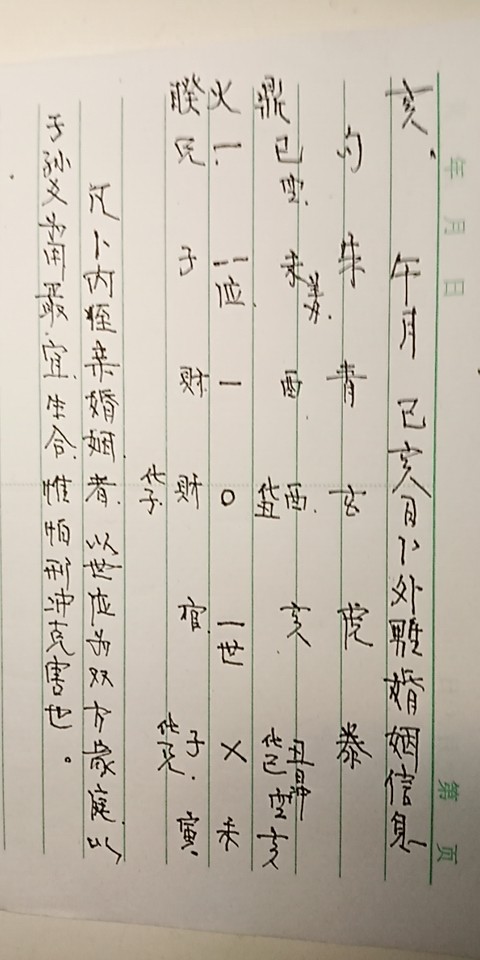 年 月 日 第 页
亥. 午月 已亥日卜外甥婚姻信息
勾 朱 青 玄 虎
鼎 已空. 未 酉 酉.化丑 亥 丑 化已空 亥
火 一 一一位. 一 ○ 一世 × 未
睽 兄 子 财 财化子. 官 子.化兄 寅
凡卜内侄亲婚姻者.以世位为双方家庭.以
子孙爻为用最宜生合.惟怕刑冲克害也。